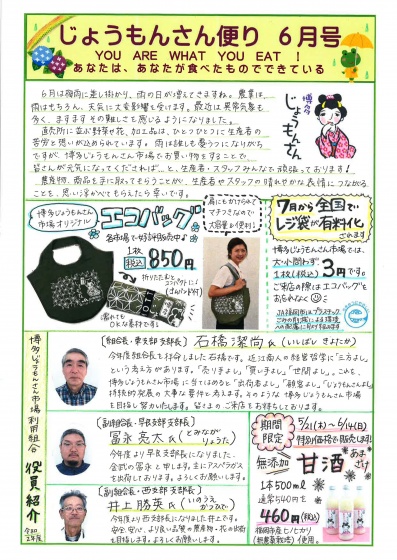 じょうもんさん便り 6月号
YOU ARE WHAT YOU EAT !
あなたは、あなたが食べたものでできている
博多
じょうもんさん
6月は梅雨に差し掛かり、雨の日が増えてきますね。農業は、
雨はもちろん、天気に大変影響を受けます。最近は異常気象も
多く、ますますその難しさを感じるようになりました。
直売所に並ぶ野菜や花、加工品は、ひとつひとつに生産者の
苦労と想いが込められています。
ですが、博多じょうもんさん市場でお買い物をすることで、
皆さんが元気になってくだされば…と、生産者・スタッフみんなで頑張っております!
農産物、商品を手に取ってもらうことが、生産者やスタッフの晴れやかな表情につながる
ことを、思い浮かべてもらえたら幸いです。
博多じょうもんさん
市場オリジナル
エコバッグ
各市場で好評販売中♪
1枚
税込 850円
折りたたむと
コンパクトに!
(ゴムバンド付)
濡れても
OKな素材です♪
肩にもかけられて
マチつきなので
大容量が便利!
7月から全国で
レジ袋が有料化
されます
博多じょうもんさん市場では、
大・小問わず、
1枚(税込)3円です。
ご来店の際はエコバッグを
おもちください
JA福岡市はプラスチック
ごみの削減による環境
への配慮に取り組みます
博多じょうもんさん市場利用組合 役員紹介
令和2年度
【組合長・東支部支部長】 石橋潔尚氏(いしばし きよたか)
今年度組合長を拝命しました石橋です。近江商人の経営哲学に「三方よし」
という考え方があります。「売り手よし」「買い手よし」「世間よし」。これを、
博多じょうもんさん市場に当てはめると「出荷者よし」「顧客よし」「じょうもんさんよし」
持続的発展の大事な要件と考えます。そのような博多じょうもんさん市場
を目指し努力いたします。皆さまのご来店をお待ちしております。
【副組合長・早良支部支部長】
冨永亮太氏(とみなが りょうた)
今年度より早良支部長になりました、
金武の冨永と申します。主にアスパラガス
を出荷しております。よろしくお願いします。
【副組合長・西支部支部長】
井上勝英氏(いのうえ かつひで)
今年度より西支部長になりました井上です。
安全・安心、より良い品質の農産物・花の出荷
を目指します。よろしくお願いします。
期間限定
5/21(木)~6/14(日)
特別価格で販売します!
無添加 甘酒 あまざけ
1本500ml
通常540円を
460円(税込)
福岡市産ヒノヒカリ
(減農薬栽培)使用。